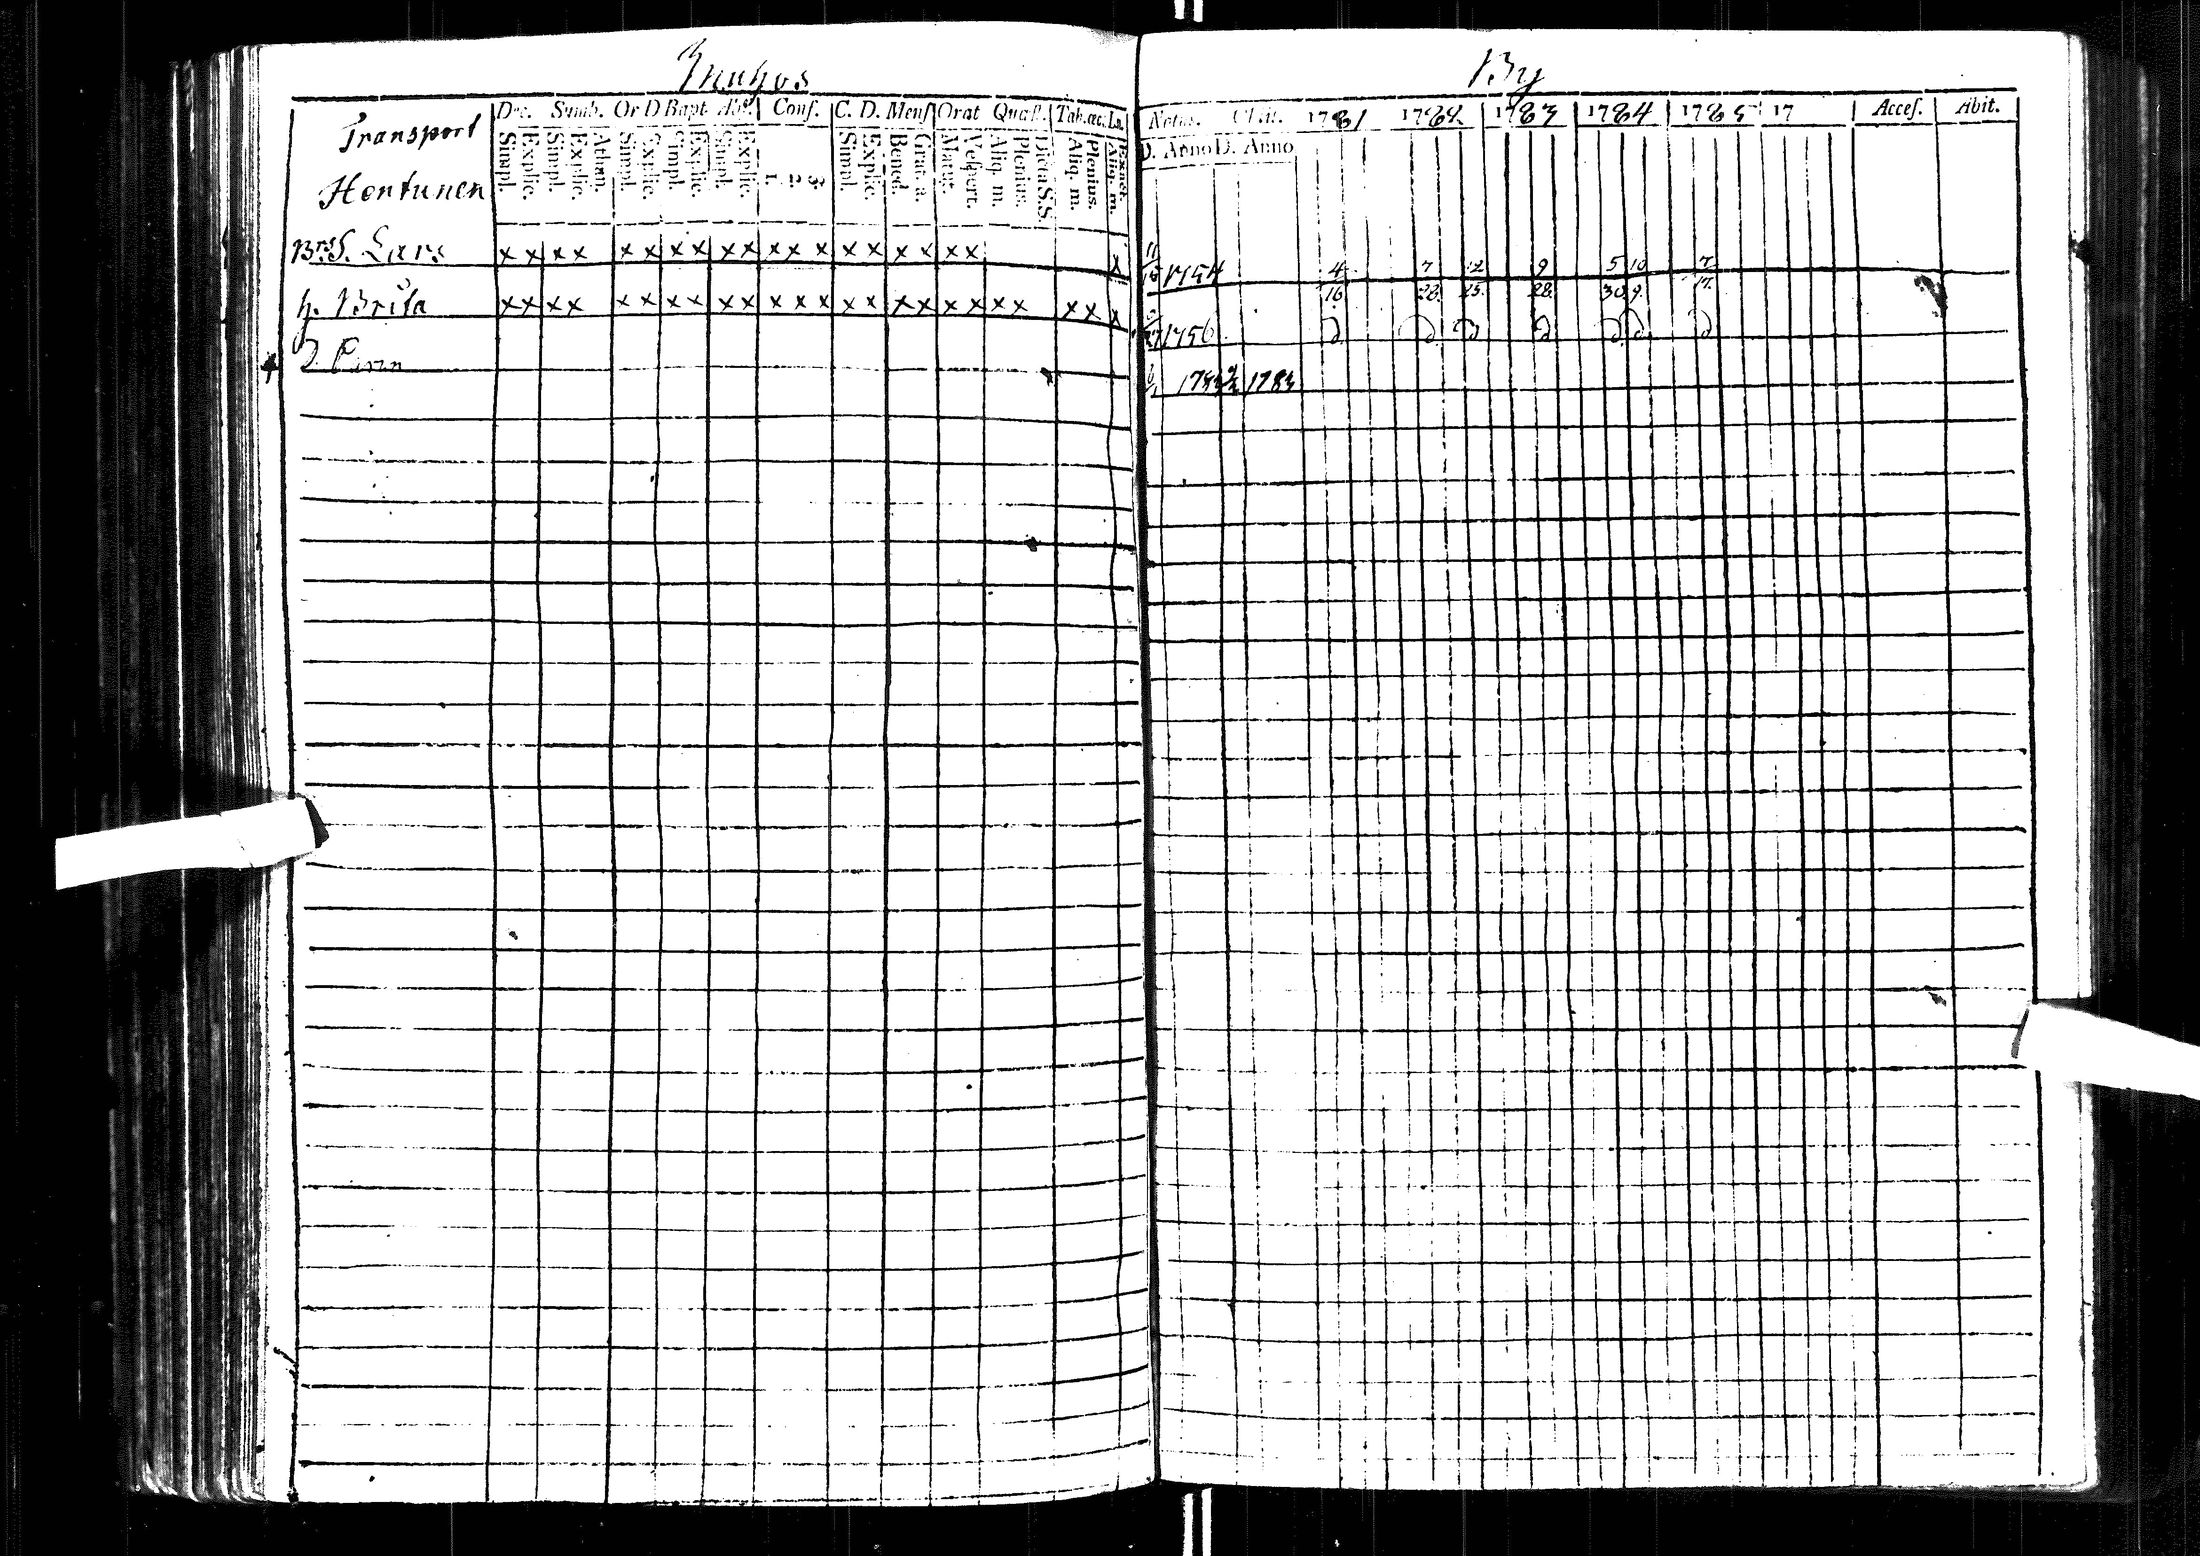 By
Dec. Symb. Or D Bapt Abs. Conf. C. D. Mens Orat Quæst. Tab. œc. La.
Transport
Simpl. Explic. Simpl. Explic. Athan. Simpl. Explic. Simpl. Explic. Simpl. Explic. 1. 2. 3. Simpl. Explic. Bened. Grat. a. Matut. Vespert. Aliq. m. Plenius. Dicta S.S. Aliq. m. Plenius. Aliq. m. Exact.
Hentunen
Lars x x x x x x x x x x x x x x x x x x x x
h. Brita x x x x x x x x x x x x x x x x x x x x x x x x
D.
Natus. Obit. 1781 1782 1783 1784 1785 17 Acces. Abit.
D. Anno D. Anno
1754 4 7 12 9 5 10 7
16 28 25. 28. 30 9. 17.
1756
1783 1783